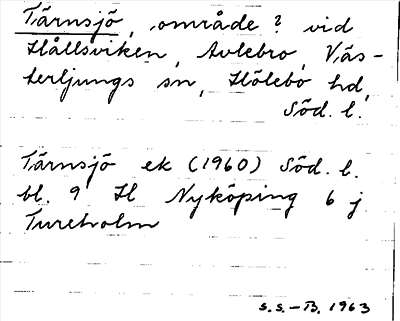 Tärnsjö, område? vid
Hållsviken, Avlebro, Väs-
terljungs sn, Hölebo hd,
Söd. l.
Tärnsjö ek (1960) Söd. l.
bl. 9 H Nyköping 6 j
Tureholm
S.S.-B. 1963